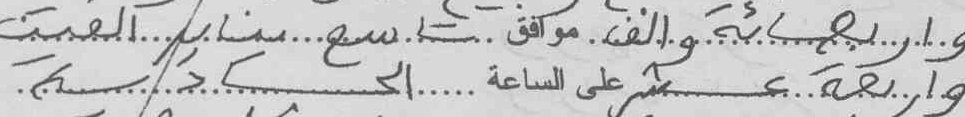 واربعمائة والف موافق تاسع يناير الفين
واربعة عشر على الساعة الحادية